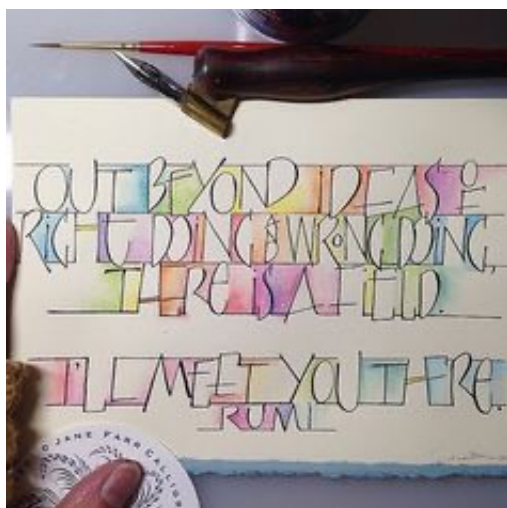 OUT BEYOND IDEAS OF
RIGHT DOING & WRONG DOING,
THERE IS A FIELD.
I'LL MEET YOU THERE.
RUMI
JANE FARR CALLIG